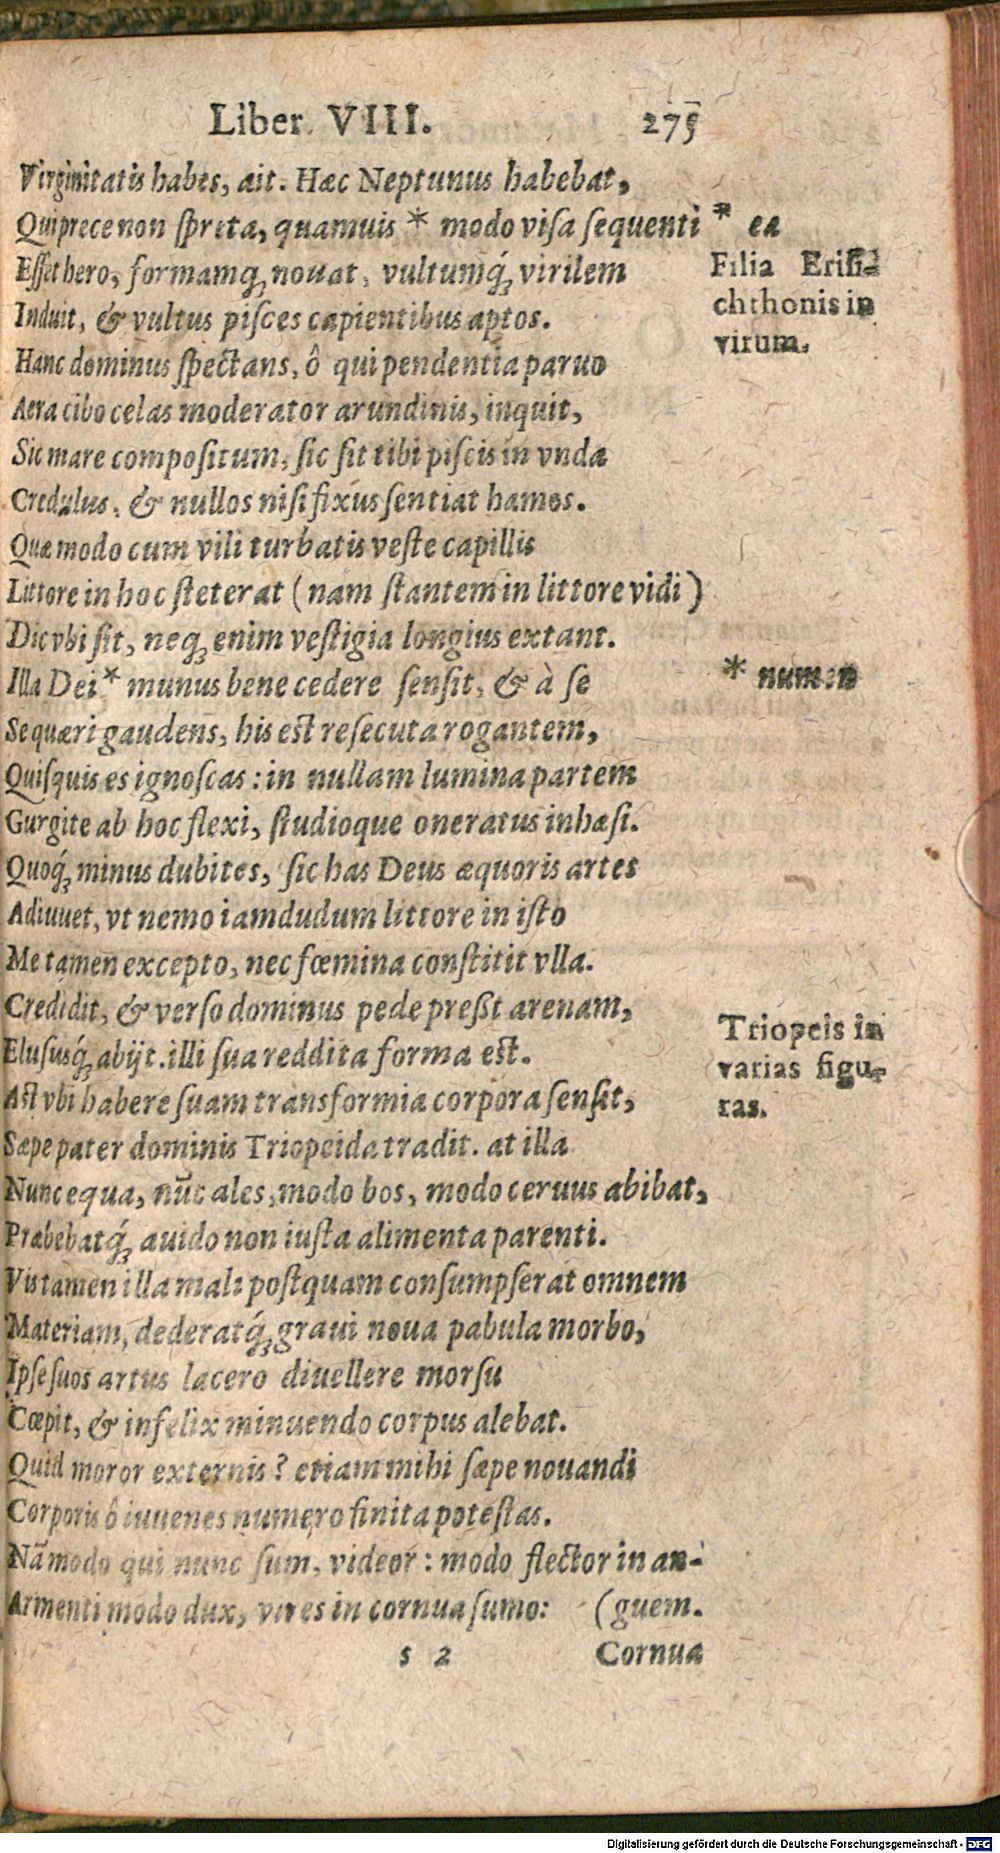 Liber VIII. 275
Virginitatis habes, ait. Hæc Neptunus habebat,
Qui prece non ſpreta, quamuis * modo viſa ſequenti * ea
Eſſet hero, formamq; nouat, vultumq́; virilem
Filia Eriſi-
Induit, & vultus piſces capientibus aptos.
chthonis in
Hanc dominus ſpectans, ô qui pendentia paruo
virum.
Aera cibo celas moderator arundinis, inquit,
Sic mare compoſitum, ſic ſit tibi piſcis in vnda
Credulus, & nullos niſi fixus ſentiat hamos.
Quæ modo cum vili turbatis veſte capillis
Littore in hoc ſteterat (nam ſtantem in littore vidi)
Dic vbi ſit, neq; enim veſtigia longius extant.
Illa Dei * munus bene cedere ſenſit, & à ſe
* numen
Se quæri gaudens, his eſt reſecuta rogantem,
Quiſquis es ignoſcas: in nullam lumina partem
Gurgite ab hoc flexi, ſtudioque oneratus inhæſi.
Quoq́; minus dubites, ſic has Deus æquoris artes
Adiuuet, vt nemo iamdudum littore in iſto
Me tamen excepto, nec fœmina conſtitit vlla.
Credidit, & verſo dominus pede preßit arenam,
Triopeis in
Eluſusq́; abijt. illi ſua reddita forma eſt.
varias figu-
Aſt vbi habere ſuam transformia corpora ſenſit,
ras.
Sæpe pater dominis Triopeida tradit. at illa
Nunc equa, nūc ales, modo bos, modo ceruus abibat,
Præbebatq́; auido non iuſta alimenta parenti.
Vis tamen illa mali poſtquam conſumpſerat omnem
Materiam, dederatq́; graui noua pabula morbo,
Ipſe ſuos artus lacero diuellere morſu
Cœpit, & infelix minuendo corpus alebat.
Quid moror externis? etiam mihi ſæpe nouandi
Corporis ô iuuenes numero finita poteſtas.
Nā modo qui nunc ſum, videor: modo flector in an-
Armenti modo dux, vires in cornua ſumo: (guem.
s 2 Cornua
Digitalisierung gefördert durch die Deutsche Forschungsgemeinschaft - DFG